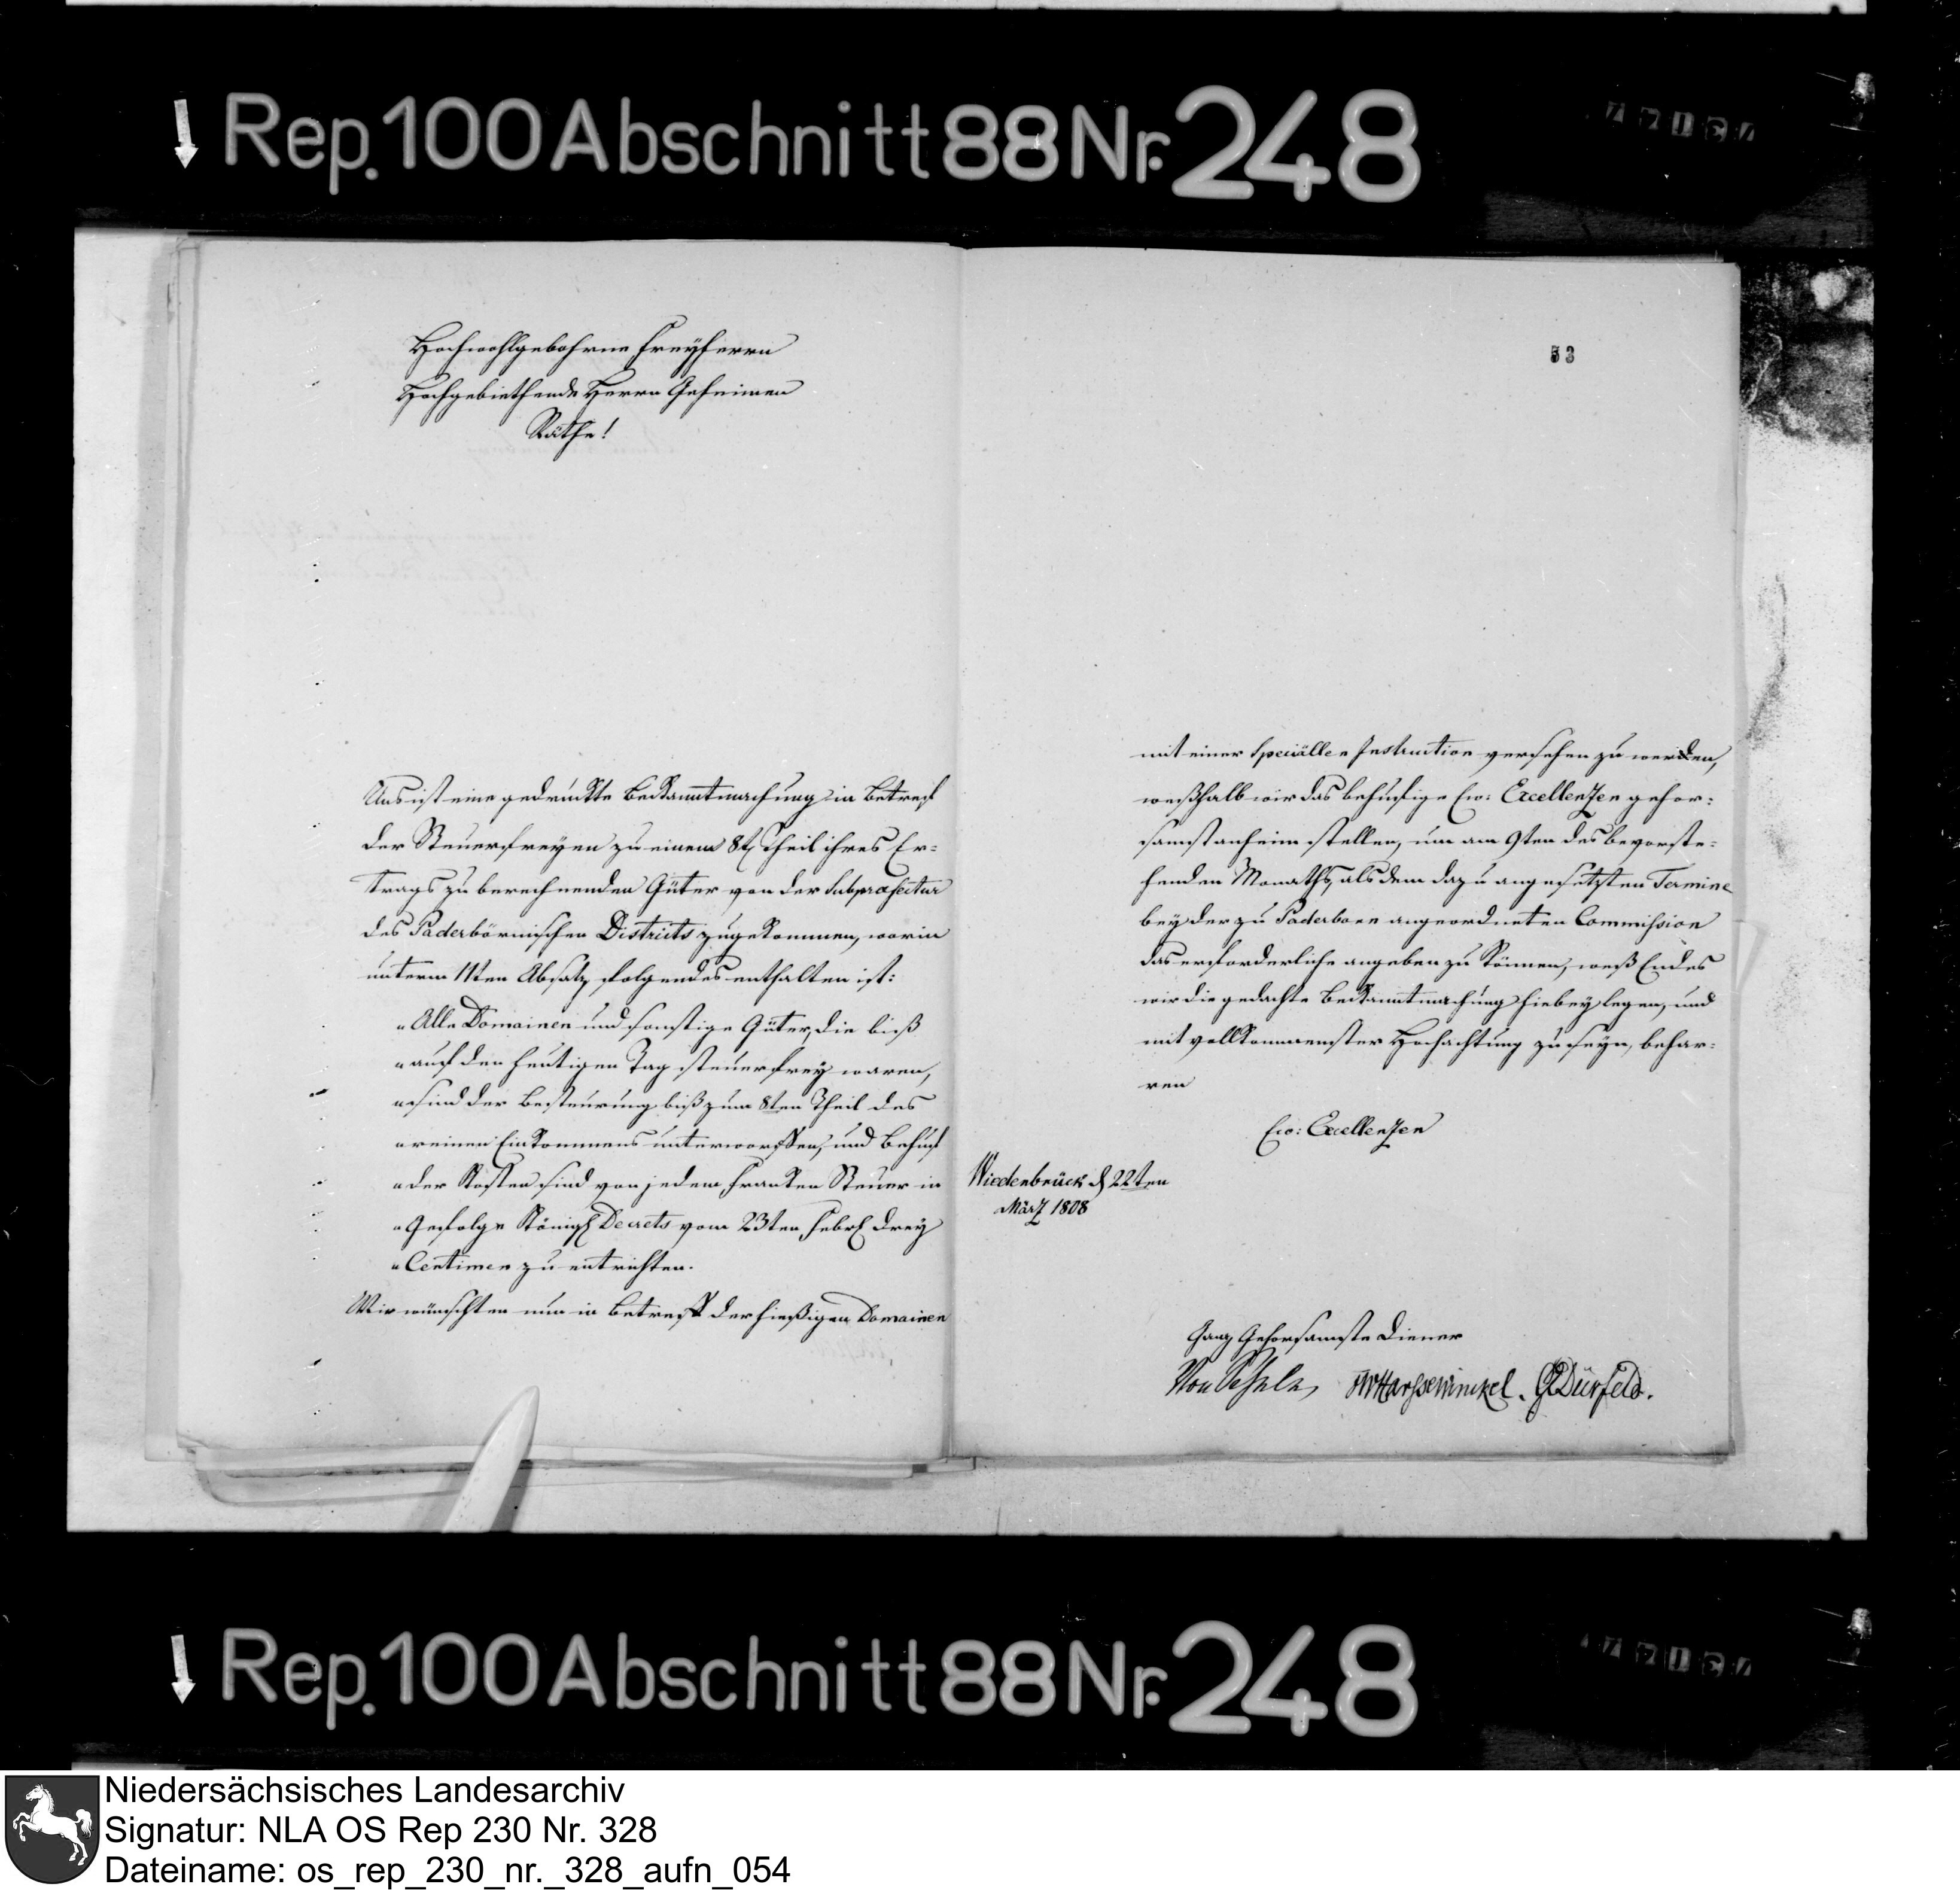 Rep. 100 Abschnitt 88 Nr. 248
Hochwohlgebohrne Freyherrn
Hochgebiethende Herrn Geheimen
Räthe!
Uns ist eine gedruckte Bekanntmachung in Betref
der Steuerfreyen zu einem 8t Theil ihres Er-
trags zu berechnenden Güter von der Subpraefectur
des Paderbörnischen Districts zugekommen, worin
unterm 11ten Absatz folgendes enthalten ist:
"Alle Domainen und sonstige Güter, die biß
"auf den heutigen Tag steuerfrey waren,
"sind der Besteurung biß zum 8ten Theil des
"reinen Einkommens unterworffen, und Behuf
"der Kosten sind von jedem Franken Steuer in
"Gefolge Königl Decrets vom 23ten Febrl drey
"Centimen zu entrichten.
Wir wünschten nun in Betreff der hießigen Domainen
53
mit einer speciällen Instruction versehen zu werden,
weßhalb wir das behufige Ew: Excellenzen gehor-
samst anheim stellen, um am 9ten des bevorste-
henden Monaths, als dem dazu angesetzten Termine
bey der zu Paderborn angeordneten Commission
das erforderliche angeben zu können, weß Endes
wir die gedachte Bekanntmachung hiebey legen, und
mit vollkommenster Hochachtung zu seyn, behar-
ren
Ew: Excellenzen
Wiedenbrück d 22ten
März 1808
Ganz Gehorsamste Diener
Von Schele, Harsewinckel. Dürfeld.
Rep. 100 Abschnitt 88 Nr. 248
Niedersächsisches Landesarchiv
Signatur: NLA OS Rep 230 Nr. 328
Dateiname: os_rep_230_nr._328_aufn_054